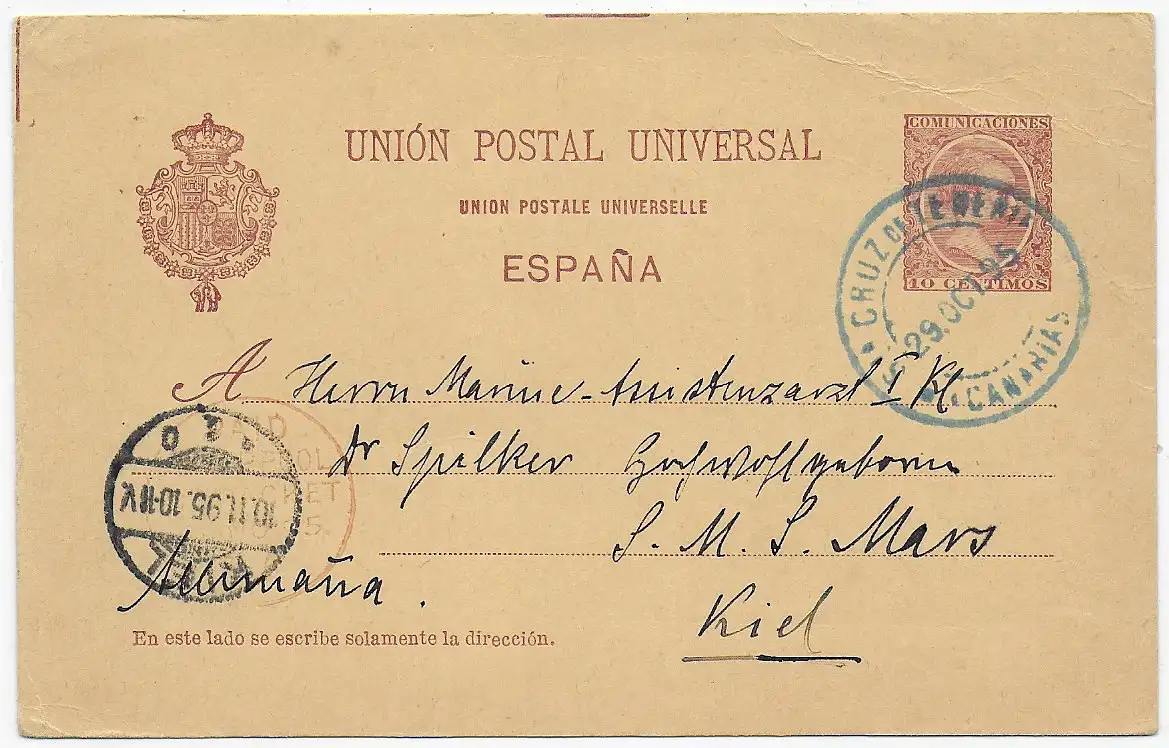 UNIÓN POSTAL UNIVERSAL
UNION POSTALE UNIVERSELLE
ESPAÑA
COMUNICACIONES
10 CENTIMOS
CRUZ DE TENERIFE
29.OCT.95
CANARIAS
A Herrn Marine-Assistenzarzt I Kl
Dr Spilker Hochwohlgeboren
S. M. S. Mars
Kiel
Alemaña.
10.11.95.10-11V.
En este lado se escribe solamente la dirección.